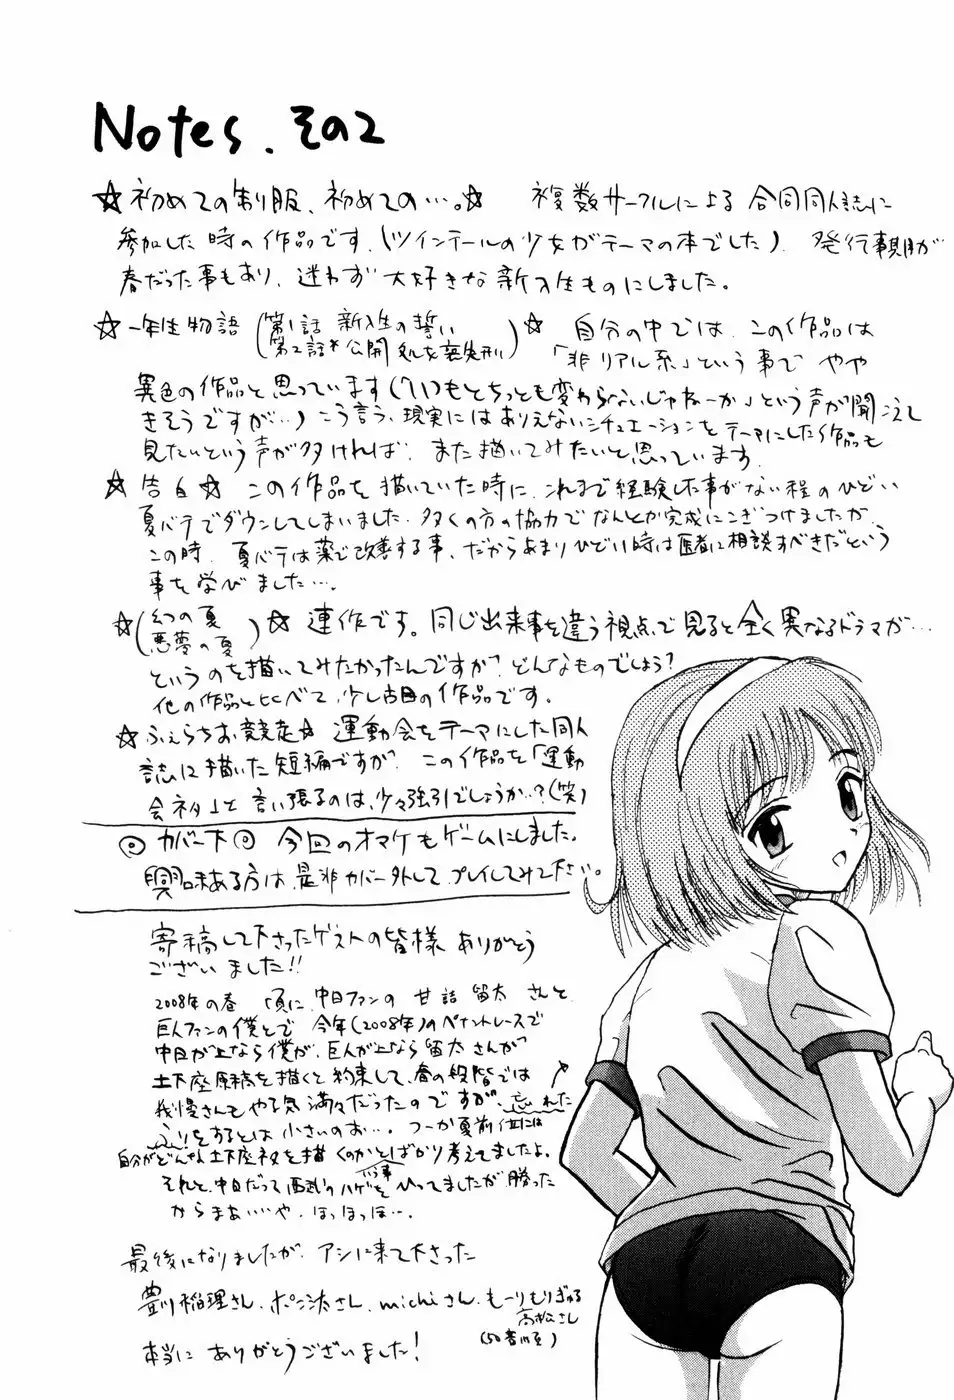 Notes. その2
☆初めての制服、初めての…。☆ 複数サークルによる合同同人誌に
参加した時の作品です。(ツインテールの少女がテーマの本でした)。発行時期が
春だった事もあり、迷わず大好きな新入生ものにしました。
☆一年生物語(第1話 新入生の誓い
第2話 公開処女喪失刑)☆ 自分の中では、この作品は
「非リアル系」という事で やや
異色の作品と思っています(「いつもとちっとも変わらないじゃねーか」という声が聞こえて
きそうですが…)こう言う、現実にはありえないシチュエーションをテーマにした作品も
見たいという声が多ければ、また描いてみたいと思っています。
☆告白☆ この作品を描いていた時に、これまで経験した事がない程のひどい
夏バテでダウンしてしまいました。多くの方の協力でなんとか完成にこぎつけましたが、
この時、夏バテは薬で改善する事、だからあまりひどい時は医者に相談すべきだという
事を学びました…。
☆(幻の夏
悪夢の夏)☆ 連作です。同じ出来事を違う視点で見ると全く異なるドラマが…
というのを描いてみたかったんですが、どんなものでしょう?
他の作品と比べて、少し古目の作品です。
☆ふぇらちお競走☆ 運動会をテーマにした同人
誌に描いた短編ですが、この作品を「運動
会ネタ」と言い張るのは、少々強引でしょうか…?(笑)
◎カバー下◎ 今回のオマケもゲームにしました。
興味ある方は、是非カバー外してプレイしてみて下さい。
寄稿して下さったゲストの皆様 ありがとう
ございました!!
2008年の春頃に、中日ファンの 甘詰留太さんと
巨人ファンの僕とで 今年(2008年)のペナントレースで
中日が上なら僕が、巨人が上なら留太さんが
土下座原稿を描くと約束して、春の段階では
我慢さんもやる気満々だったのですが、忘れた
ふりをするとは小さいのお…。つーか夏前位には
自分がどんな土下座ネタを描くのかとばかり考えてましたよ。
それと、中日だって西武の
ひってましたが勝った
からまぁいいや、ほっほっほ…。
最後になりましたが、アシに来て下さった
豊川稲理さん、ポン汰さん、michiさん、もーりもりぎゅる
高松さん
(50音順)
本当に ありがとうございました!